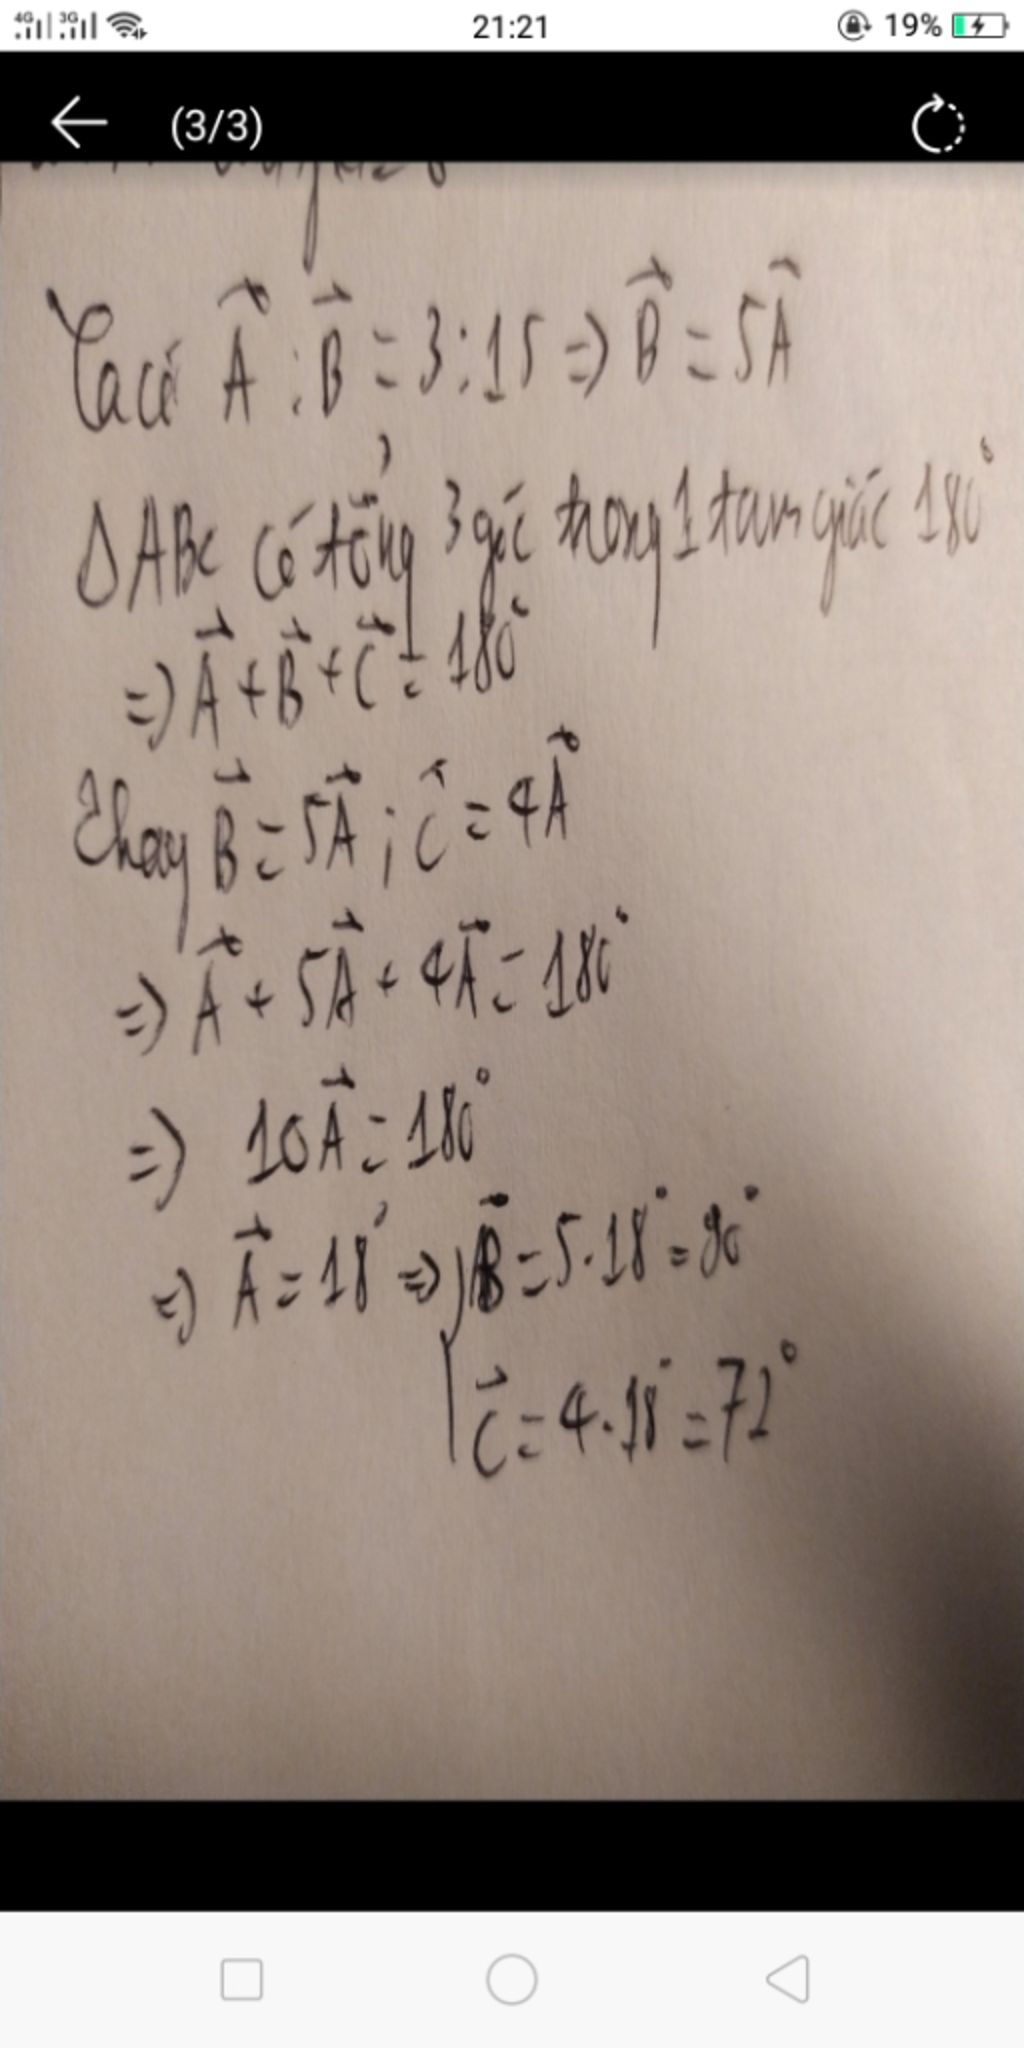 4G 3G 21:21 19%
(3/3)
Ta có A⃗ : B⃗ = 3:15 => B⃗ = 5A⃗
ΔABC có tổng 3 góc trong 1 tam giác 180°
=> A⃗ + B⃗ + C⃗ = 180°
Thay B⃗ = 5A⃗ ; C⃗ = 4A⃗
=> A⃗ + 5A⃗ + 4A⃗ = 180°
=> 10A⃗ = 180°
=> A⃗ = 18° => B⃗ = 5.18° = 90°
C⃗ = 4.18° = 72°